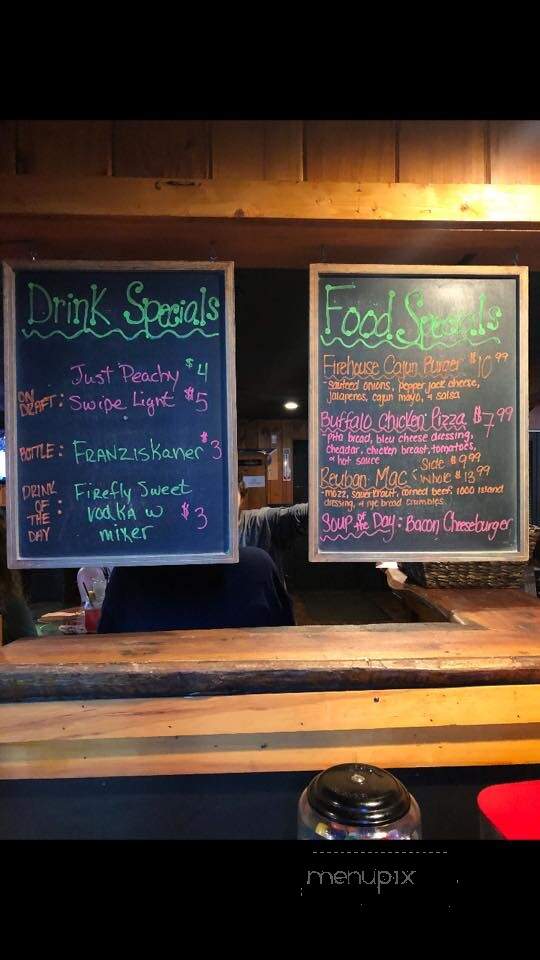 Drink Specials
Just Peachy $4
ON DRAFT: Swipe Light $5
BOTTLE: FRANZISKANER $3
DRINK OF THE DAY
Firefly Sweet
vodka w $3
mixer
Food Specials
Firehouse Cajun Burger $10.99
-sauteed onions, pepper jack cheese,
jalapenos, cajun mayo, & salsa
Buffalo Chicken Pizza $7.99
-pita bread, bleu cheese dressing,
cheddar, chicken breast, tomatoes,
& hot sauce
Reuban Mac: Side $9.99
Whole $13.99
-mozz, sauerkraut, corned beef, 1000 island
dressing, & rye bread crumbles
Soup of the Day: Bacon Cheeseburger
menupix